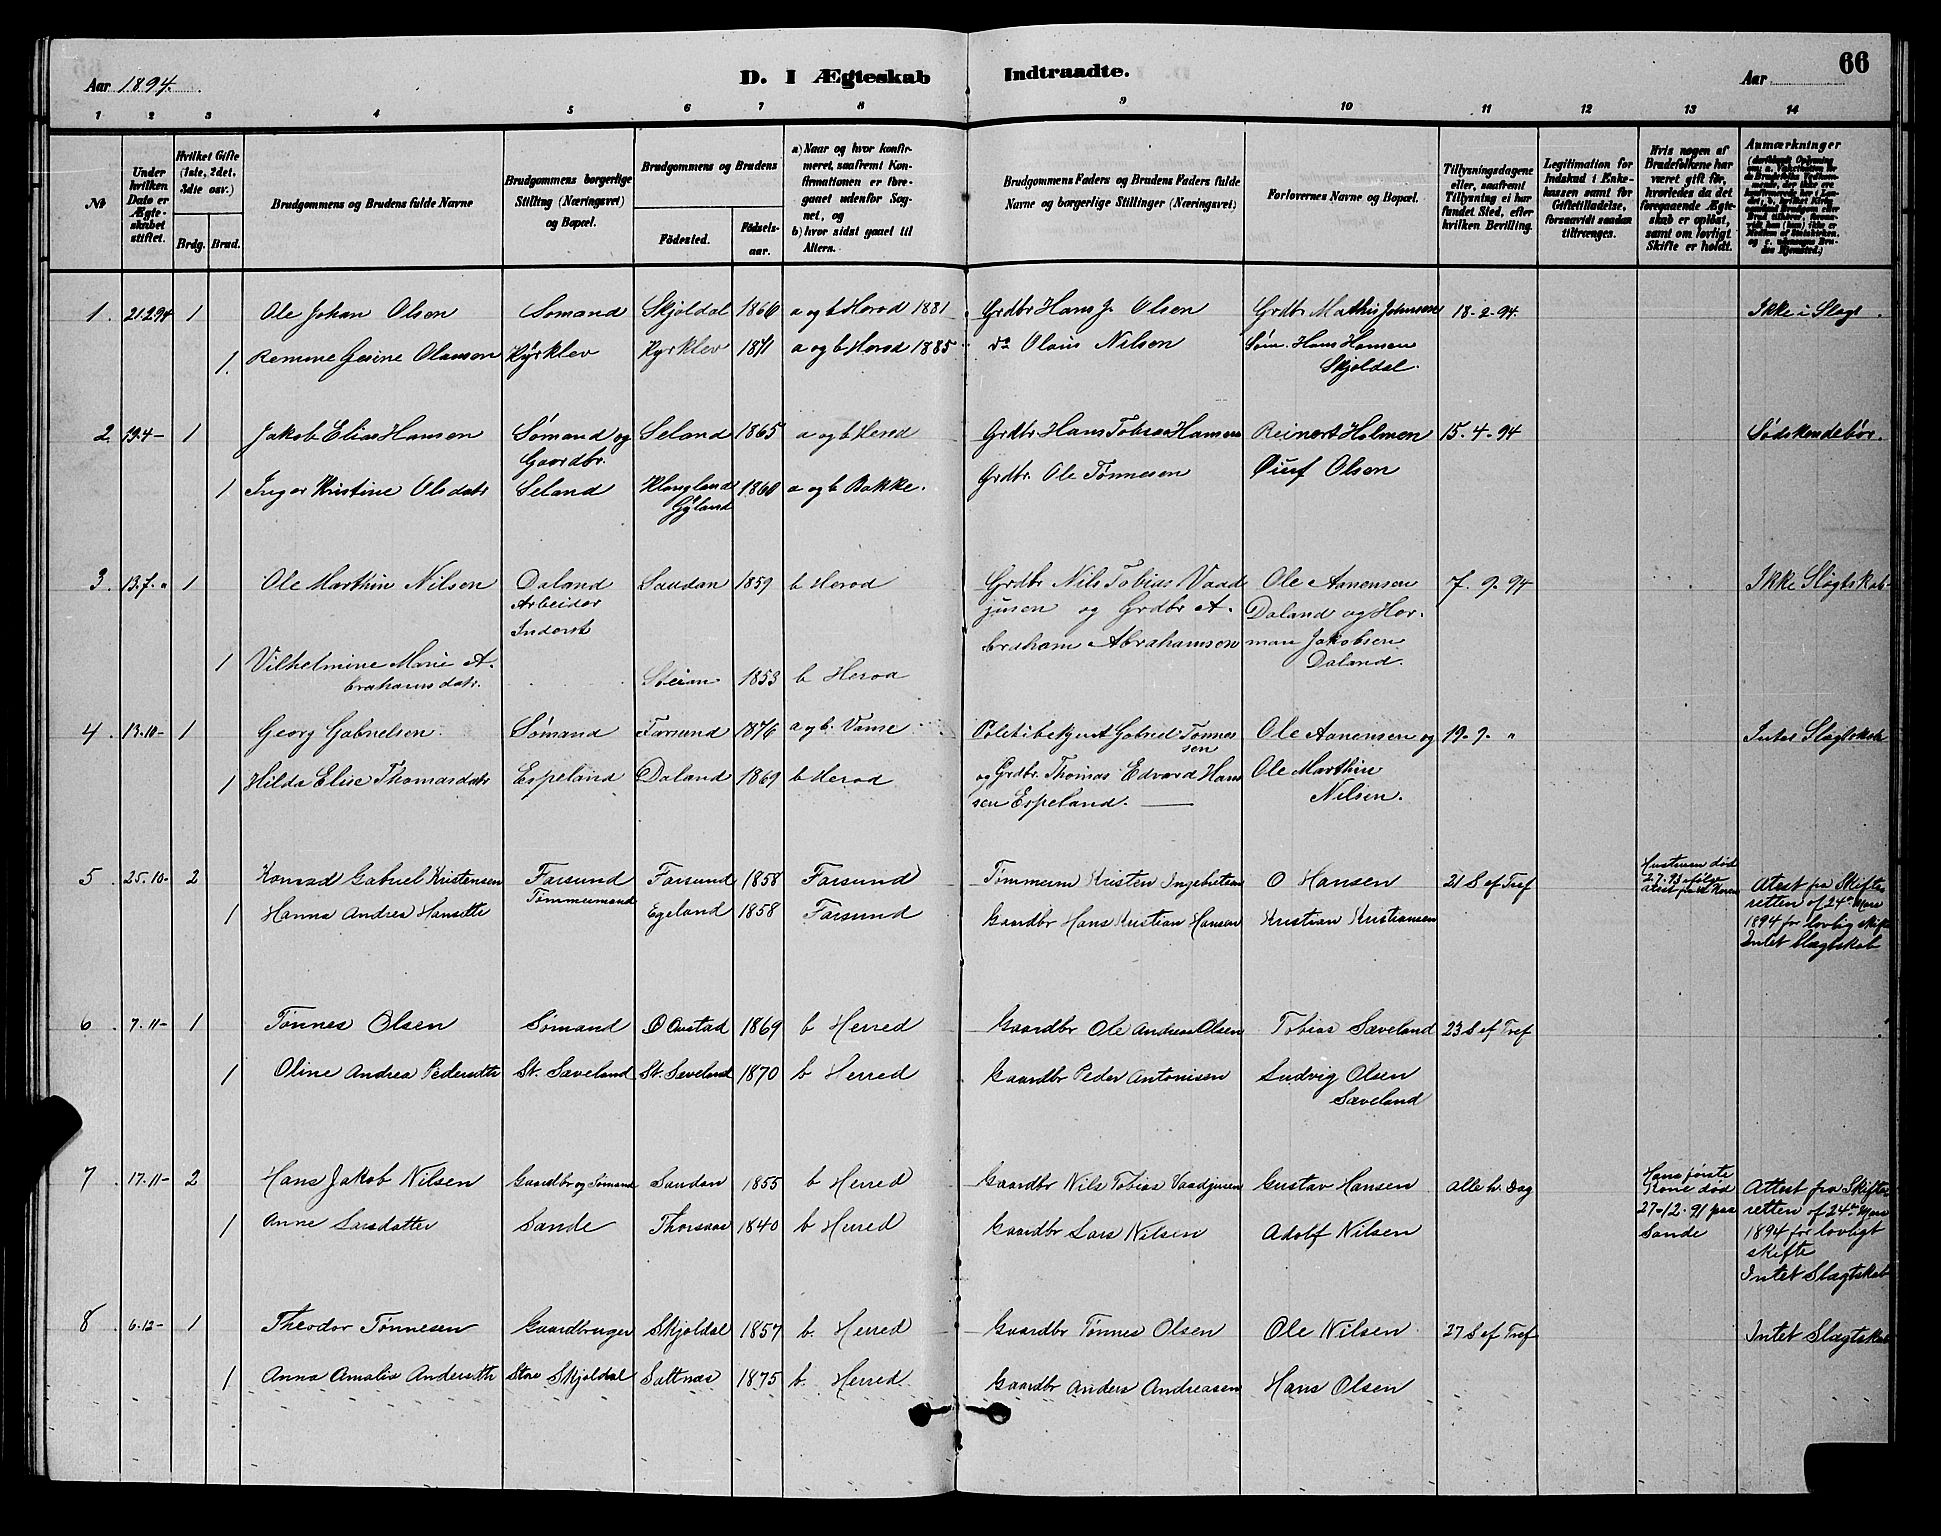 Aar 1894. D. I Ægteskab Indtraadte. Aar 66
1 2 3 4 5 6 7 8 9 10 11 12 13 14
No
Under hvilken Dato er Ægteskabet stiftet.
Hvilket Gifte (1ste, 2det, 3die osv.)
Brdg. Brud.
Brudgommens og Brudens fulde Navne
Brudgommens borgerlige Stilling (Næringsvei) og Bopæl.
Brudgommens og Brudens
Födested. Födsels-aar.
a) Naar og hvor konfir-
meret, saafremt Kon-
firmationen er fore-
gaaet udenfor Sog-
net, og
b) hvor sidst gaaet til
Alters.
Brudgommens Faders og Brudens Faders fulde
Navne og borgerlige Stillinger (Næringsvei)
Forlovernes Navne og Bopæl.
Tillysningsdagene
eller, saafremt
Tillysning ei har
fundet Sted, efter
hvilken Bevilling.
Legitimation for
Indskud i Enke-
kassen samt for
Giftetilladelse,
forsaavidt saadan
tiltrænges.
Hvis nogen af
Brudefolkene har
været gift för,
hvorledes da det
foregaaende Ægte-
skab er oplöst,
samt om lovligt
Skifte er holdt.
Anmærkninger
1. 21294 1 Ole Johan Olsen Sømand Skjoldal 1866 a og b Herod 1881 Grdbr Hans J. Olsen Grdbr Mathis Johnsen 18-2-94. Ikke i Slægt.
1. Remme Gesine Olausen Kyrklev Kyrklev 1871 a og b Herod 1885 do Olaus Nilsen Søm. Hans Hansen
Skjoldal.
2. 19.4- 1 Jakob Elias Hansen Sømand og Seland 1865 a og b Herod Grdbr Hans Tobias Hansen Reinert Holmen 15.4.94 Sødskendebør.
Gaardbr.
1 Inger Kristine Olsdatr Seland Klungland 1860 a og b Bakke. Grdbr. Ole Tønnesen Olsen
Gyland
3 13.7. " 1 Ole Marthin Nilsen Daland Saudan 1859 b Herod Grdbr Nils Tobias Vaad Ole Aanensen 7. 9. 94 Ikke Slægtskab.
Arbeider jusen og Grdbr A- Daland og Her-
Inderst braham Abrahamsen man Jakobsen
1 Vilhelmine Marie A- 1853 b Herod Daland.
brahamsdatr.
4 13.10- 1 Georg Gabrielsen Sømand Farsund 1876 a og b. Vanse Politibetjent Gabriel Tønnes Ole Aanensen og 19. 9. " Intet Slægtskab
sen
1 Hilda Elise Thomasdatr Espeland Daland 1869 b Herod og Grdbr. Thomas Edvard Han Ole Marthin
sen Espeland. Nilsen.
5 25.10- 2 Konrad Gabriel Kristensen Farsund Farsund 1858 Farsund Tømmerm Kristen Ingebretsen O Hansen 21 S ef Tref Hustruen død Atest fra Skifte
Tømmermand retten af 24de Mars
1 Hanna Andrea Hansdtr Egeland 1858 Farsund Gaardbr Hans Kristian Hansen Kristian Kristiansen 1894 for lovlig skifte
Intet Slægtskab
6 7.11- 1 Tønnes Olsen Sømand O Oustad 1869 b Herred Gaardbr Ole Andreas Olsen Tobias Sæveland 23 S ef Tref
1 Oline Andrea Pedersdtr St. Sæveland St. Sæveland 1870 b Herred Gaardbr Peder Antonisen Ludvig Olsen
Sæveland
7 17.11- 2 Hans Jakob Nilsen Gaardbr og Sømand Saudan 1855 b Herred Gaardbr Nils Tobias Vaadjusen Gustav Hansen alle h. Dag Hans første Attest fra Skifte
Kone død retten af 24de Mars
1 Anne Larsdatter Sande Thorsaas 1840 b Herred Gaardbr Lars Nilsen Adolf Nilsen 27-12.91 paa 1894 for lovligt
Sande skifte
Intet Slægtskab
8 6.12- 1 Theodor Tønnesen Gaardbruger Skjoldal 1857 b. Herred Gaardbr Tønnes Olsen Ole Nilsen 27 S ef Tref Intet Slægtskab
1 Anna Amalie Andersdtr Store Skjoldal Saltnæs 1875 b. Herred Gaardbr Anders Andreasen Hans Olsen